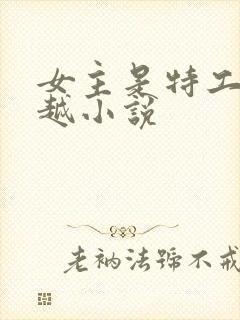 女主是特工
越小説
老衲法號不戒